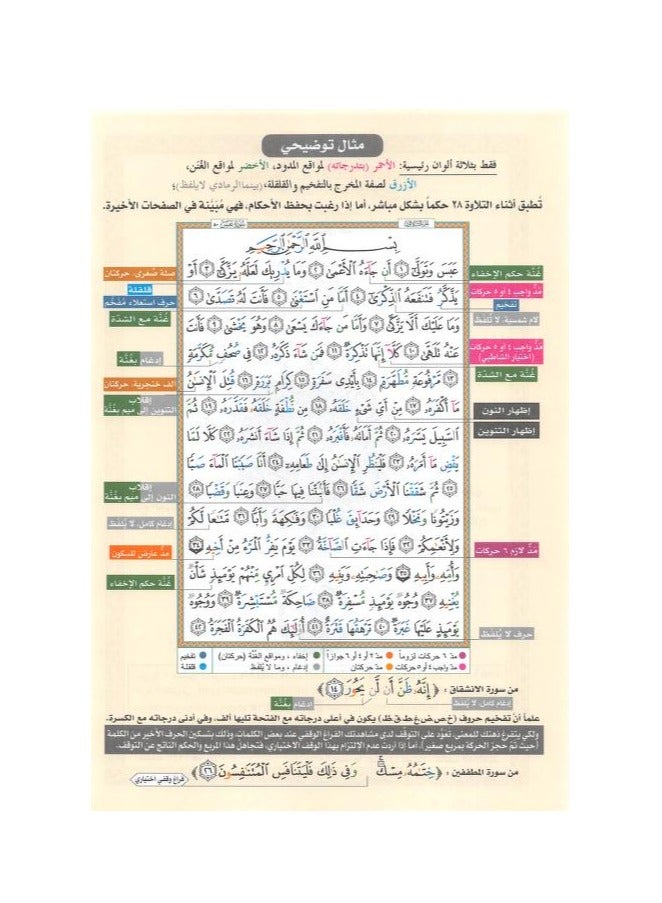 مثال توضيحي
فقط بثلاثة ألوان رئيسية: الأحمر (بتدرجاته) لمواقع المدود، الأخضر لمواقع الغُنن،
الأزرق لصفة المخرج بالتفخيم والقلقلة، (بينما الرمادي لا يلفظ)؛
تُطبق أثناء التلاوة ٢٨ حكماً بشكل مباشر، أما إذا رغبت بحفظ الأحكام، فهي مُبيّنة في الصفحات الأخيرة.
بِسْمِ ٱللَّهِ ٱلرَّحْمَٰنِ ٱلرَّحِيمِ
عَبَسَ وَتَوَلَّىٰٓ ١ أَن جَآءَهُ ٱلْأَعْمَىٰ ٢ وَمَا يُدْرِيكَ لَعَلَّهُۥ يَزَّكَّىٰٓ ٣ أَوْ
يَذَّكَّرُ فَتَنفَعَهُ ٱلذِّكْرَىٰٓ ٤ أَمَّا مَنِ ٱسْتَغْنَىٰ ٥ فَأَنتَ لَهُۥ تَصَدَّىٰ ٦
وَمَا عَلَيْكَ أَلَّا يَزَّكَّىٰ ٧ وَأَمَّا مَن جَآءَكَ يَسْعَىٰ ٨ وَهُوَ يَخْشَىٰ ٩ فَأَنتَ
عَنْهُ تَلَهَّىٰ ١٠ كَلَّآ إِنَّهَا تَذْكِرَةٌ ١١ فَمَن شَآءَ ذَكَرَهُۥ ١٢ فِى صُحُفٍ مُّكَرَّمَةٍ
١٣ مَّرْفُوعَةٍ مُّطَهَّرَةٍ ١٤ بِأَيْدِى سَفَرَةٍ ١٥ كِرَامٍۭ بَرَرَةٍ ١٦ قُتِلَ ٱلْإِنسَٰنُ
مَآ أَكْفَرَهُۥ ١٧ مِنْ أَىِّ شَىْءٍ خَلَقَهُۥ ١٨ مِن نُّطْفَةٍ خَلَقَهُۥ فَقَدَّرَهُۥ ١٩ ثُمَّ
ٱلسَّبِيلَ يَسَّرَهُۥ ٢٠ ثُمَّ أَمَاتَهُۥ فَأَقْبَرَهُۥ ٢١ ثُمَّ إِذَا شَآءَ أَنشَرَهُۥ ٢٢ كَلَّا لَمَّا
يَقْضِ مَآ أَمَرَهُۥ ٢٣ فَلْيَنظُرِ ٱلْإِنسَٰنُ إِلَىٰ طَعَامِهِۦٓ ٢٤ أَنَّا صَبَبْنَا ٱلْمَآءَ صَبًّا
٢٥ ثُمَّ شَقَقْنَا ٱلْأَرْضَ شَقًّا ٢٦ فَأَنۢبَتْنَا فِيهَا حَبًّا ٢٧ وَعِنَبًا وَقَضْبًا ٢٨
وَزَيْتُونًا وَنَخْلًا ٢٩ وَحَدَآئِقَ غُلْبًا ٣٠ وَفَٰكِهَةً وَأَبًّا ٣١ مَّتَٰعًا لَّكُمْ
وَلِأَنْعَٰمِكُمْ ٣٢ فَإِذَا جَآءَتِ ٱلصَّآخَّةُ ٣٣ يَوْمَ يَفِرُّ ٱلْمَرْءُ مِنْ أَخِيهِ ٣٤
وَأُمِّهِۦ وَأَبِيهِ ٣٥ وَصَٰحِبَتِهِۦ وَبَنِيهِ ٣٦ لِكُلِّ ٱمْرِئٍ مِّنْهُمْ يَوْمَئِذٍ شَأْنٌ
يُغْنِيهِ ٣٧ وُجُوهٌ يَوْمَئِذٍ مُّسْفِرَةٌ ٣٨ ضَاحِكَةٌ مُّسْتَبْشِرَةٌ ٣٩ وَوُجُوهٌ
يَوْمَئِذٍ عَلَيْهَا غَبَرَةٌ ٤٠ تَرْهَقُهَا قَتَرَةٌ ٤١ أُو۟لَٰٓئِكَ هُمُ ٱلْكَفَرَةُ ٱلْفَجَرَةُ ٤٢
غُنّة حكم الإخفاء
مدّ واجب ٤ او ٥ حركات
تفخيم
لام شمسية: لا تُلفظ
مدّ واجب ٤ او ٥ حركات
(اختيار الشاطبي)
غُنّة مع الشدّة
إظهار النون
إظهار التنوين
مَدّ لازم ٦ حركات
حرف لا يُلفظ
صلة صُغرى: حركتان
قلقلة
حرف استعلاء مُفخّم
غُنّة مع الشدّة
إدغام بغُنّة
ألف خنجرية: حركتان
إقلاب
التنوين إلى ميم بغُنّة
إقلاب
النون إلى ميم بغُنّة
إدغام كامل، لا يُلفظ
مدّ عارض للسكون
غُنّة حكم الإخفاء
مدّ ٦ حركات لزوماً مدّ ٢ أو ٤ أو ٦ جوازاً إخفاء، ومواقع الغُنّة (حركتان) تفخيم
مدّ واجب ٤ أو ٥ حركات مدّ حركتان إدغام، وما لا يُلفظ قلقلة
من سورة الانشقاق: ﴿إِنَّهُۥ ظَنَّ أَن لَّن يَحُورَ ١٤﴾
إدغام كامل، لا يلفظ إدغام بغُنّة
علماً أنّ تفخيم حروف (خ.ص.ض.غ.ط.ق.ظ) يكون في أعلى درجاته مع الفتحة تليها ألف، وفي أدنى درجاته مع الكسرة.
ولكي يتفرغ ذهنك للمعنى، تعوّد على التوقف لدى مشاهدتك الفراغ الوقفي عند بعض الكلمات، وذلك بتسكين الحرف الأخير من الكلمة
(حيث تمّ حجز الحركة بمربع صغير)، أما إذا أردت عدم الالتزام بهذا الوقف الاختياري، فتجاهل هذا المربع والحكم الناتج عن التوقف.
من سورة المطففين: ﴿خِتَٰمُهُۥ مِسْكٌ وَفِى ذَٰلِكَ فَلْيَتَنَافَسِ ٱلْمُتَنَٰفِسُونَ ٢٦﴾
فراغ وقفي اختياري